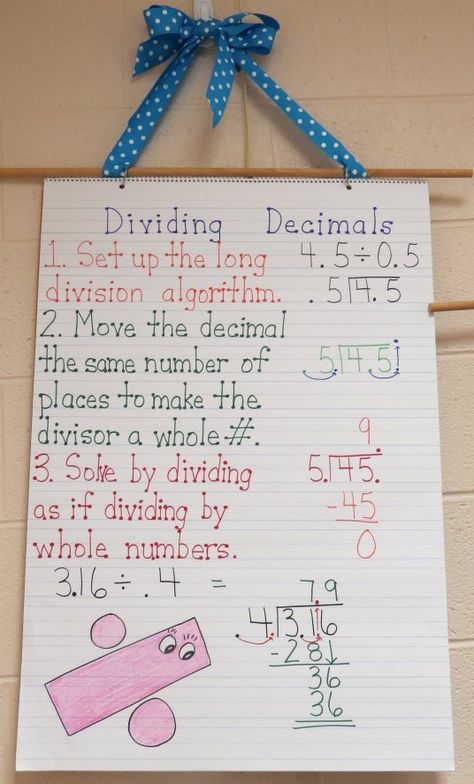 Dividing Decimals
1. Set up the long 4.5÷0.5
division algorithm. .5⟌4.5
2. Move the decimal
the same number of .5.⟌4.5.
places to make the
divisor a whole #. 9.
3. Solve by dividing 5.⟌45.
as if dividing by -45
whole numbers. 0
3.16 ÷ .4 = 7.9
.4.⟌3.16
-28↓
36
36